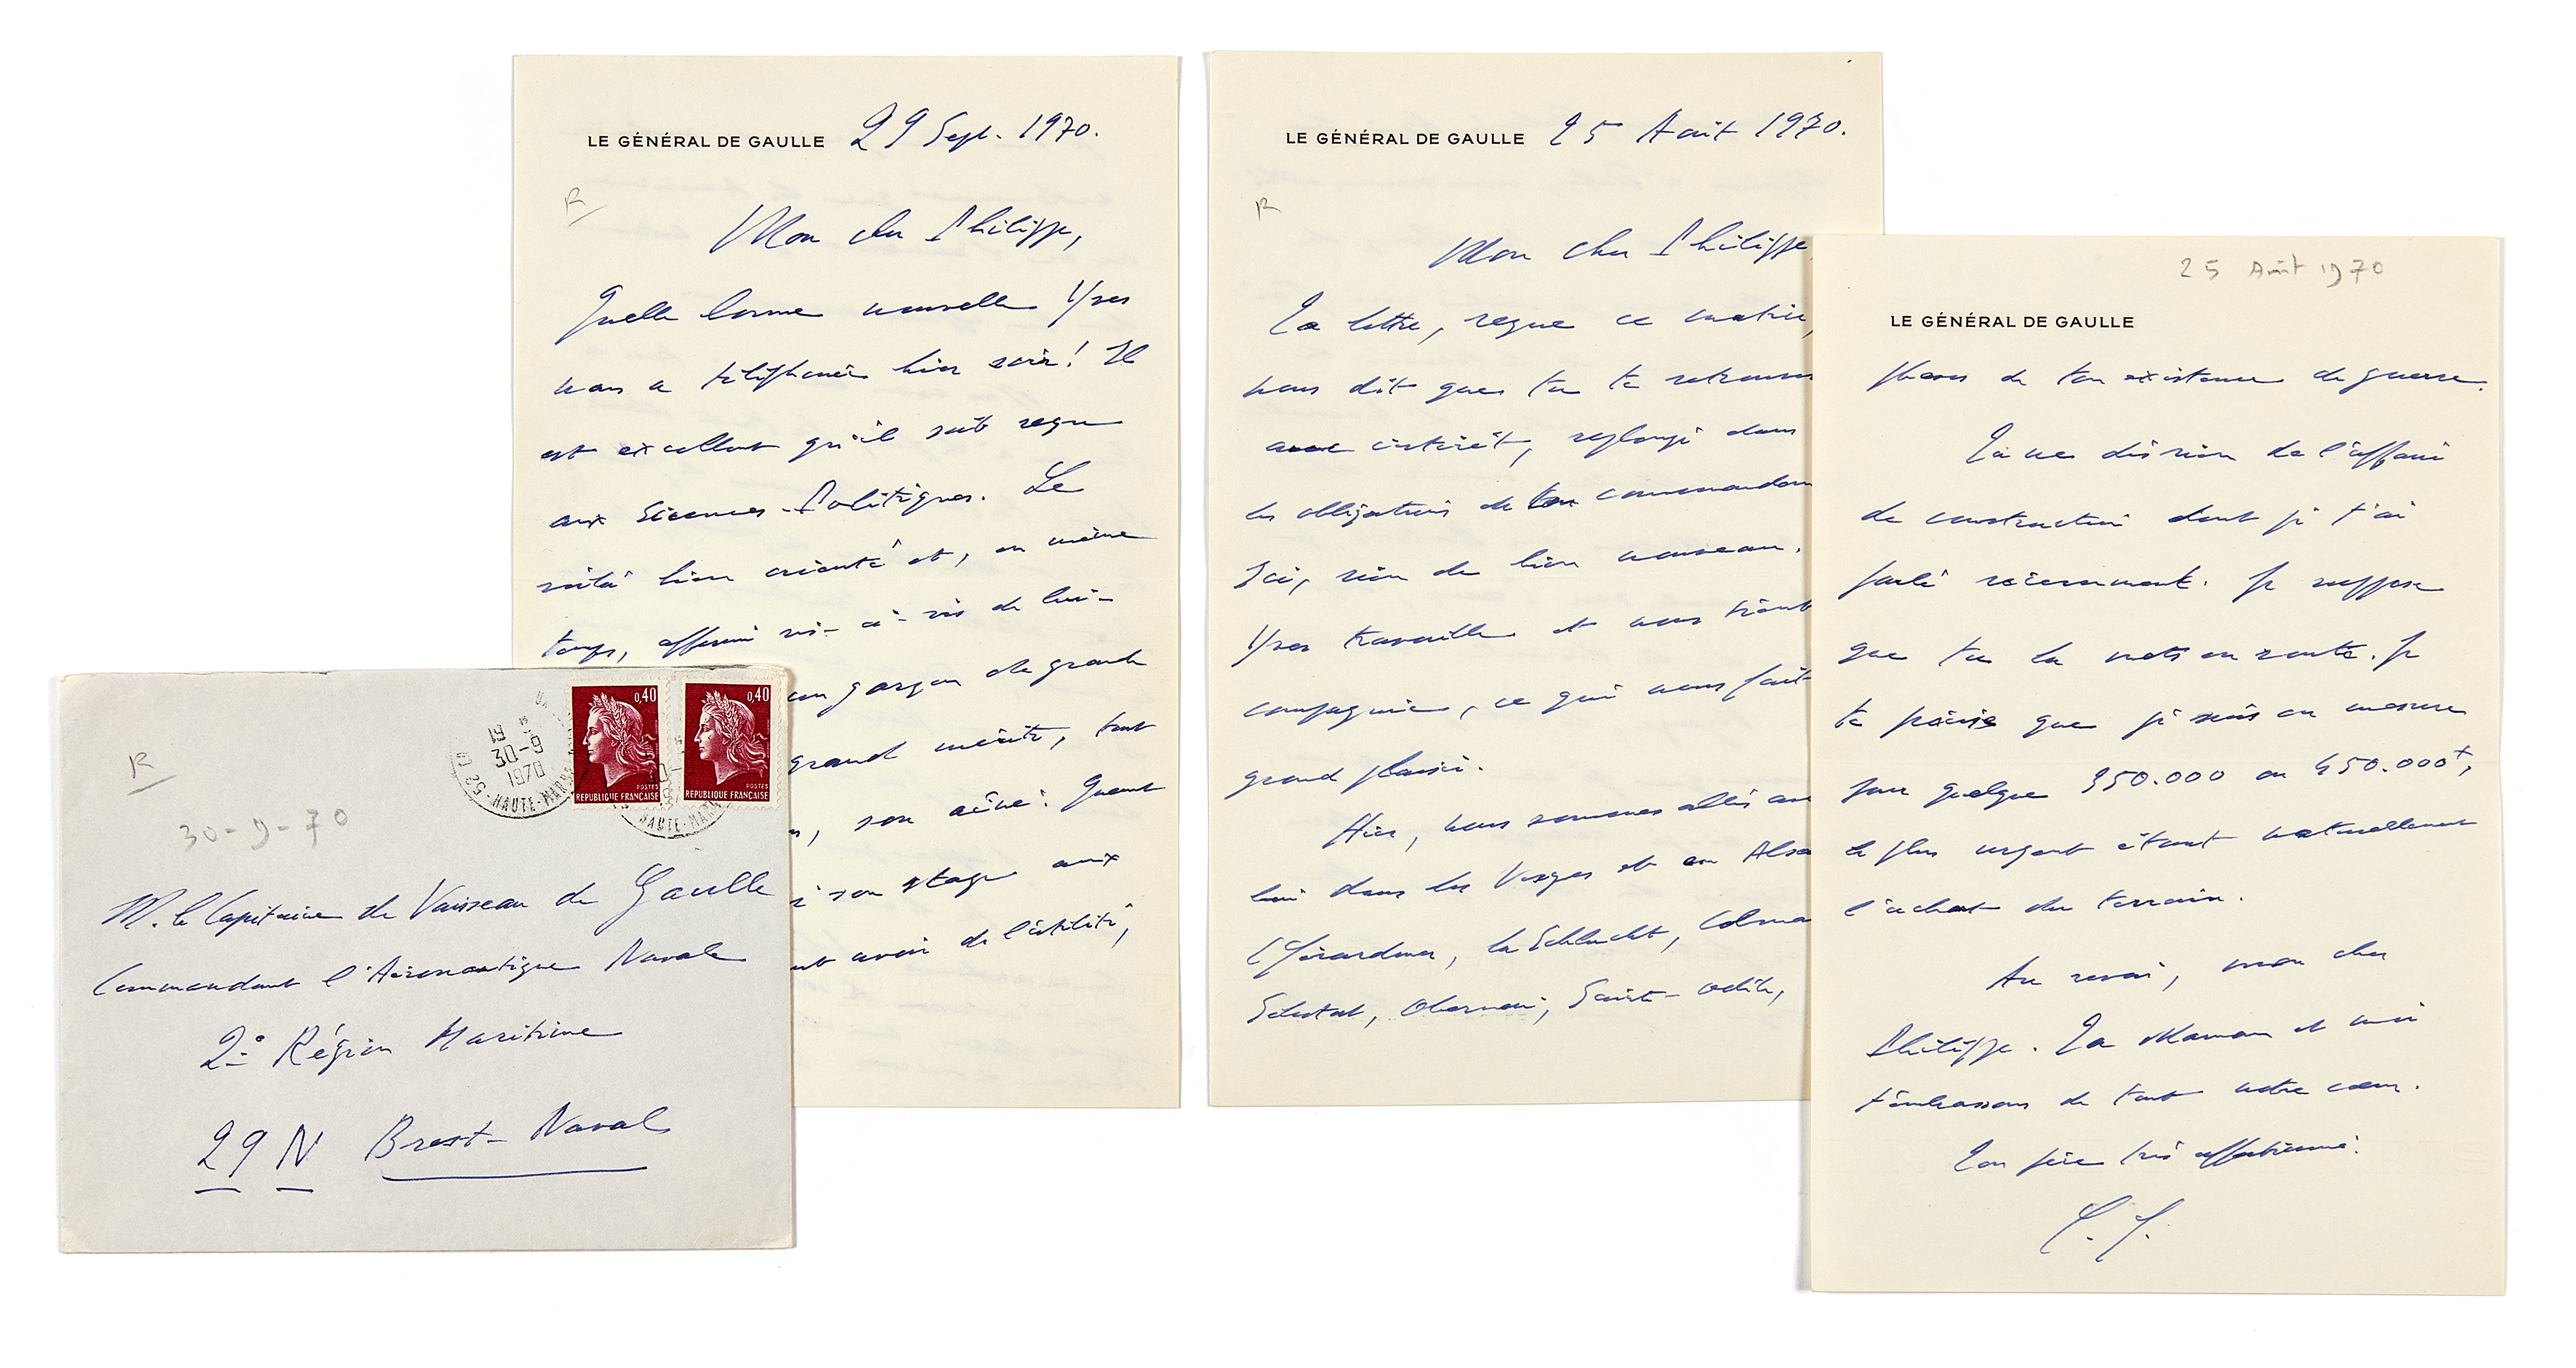 LE GÉNÉRAL DE GAULLE 29 Sept. 1970.
R
Mon cher Philippe,
Quelle bonne nouvelle Yves
nous a téléphonée hier soir! Il
est excellent qu'il soit reçu
aux Sciences-Politiques. Le
voilà bien orienté et, en même
temps, affermi vis-à-vis de lui-
un garçon de grande
grand mérite, tout
son aîné. Quant
son stage aux
avoir de l'utilité,
LE GÉNÉRAL DE GAULLE 25 Août 1970.
R
Mon cher Philippe,
Ta lettre, reçue ce matin,
nous dit que tu te retrouves
avec intérêt, replongé dans
les obligations de ton commandem
Ici, rien de bien nouveau.
Yves travaille et nous tient
compagnie, ce qui nous fait
grand plaisir.
Hier, nous sommes allés avec
lui dans les Vosges et en Alsa
(Gérardmer, la Schlucht, Colma
Sélestat, Obernai, Sainte-Odile,
25 Août 1970
LE GÉNÉRAL DE GAULLE
phases de ton existence de guerre.
Tu ne dis rien de l'affaire
de construction dont je t'ai
parlé récemment. Je suppose
que tu la mets en route. Je
te précise que je suis en mesure
pour quelque 350.000 ou 450.000
le plus urgent étant naturellement
l'achat du terrain.
Au revoir, mon cher
Philippe. Ta Maman et moi
t'embrassons de tout notre cœur.
Ton père très affectionné.
C. G.
19
30-9
1970
HAUTE-MARNE
0,40
POSTES
REPUBLIQUE FRANÇAISE
0,40
POSTES
REPUBLIQUE FRANÇAISE
HAUTE-MAR
R
30-9-70
M. le Capitaine de Vaisseau de Gaulle
Commandant l'Aéronautique Navale
2° Région Maritime
29 N Brest-Naval